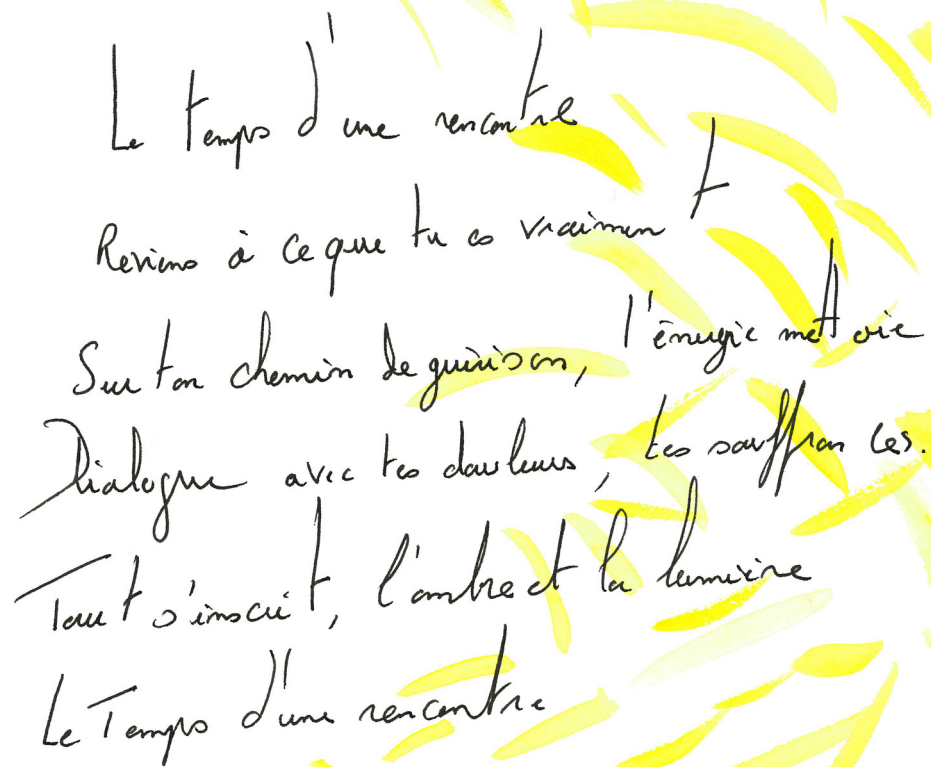 Le Temps d'une rencontre
Reviens à ce que tu es vraiment
Sur ton chemin de guérison, l'énergie met vie
Dialogue avec tes douleurs, tes souffrances.
Tout s'inscrit, l'ombre et la lumière
Le Temps d'une rencontre